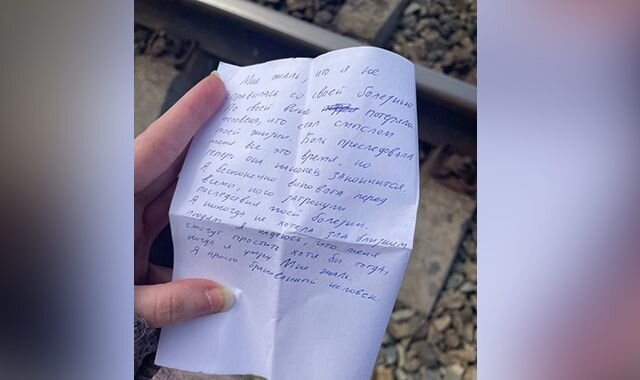 Мне жаль, что я не
справилась со своей болезнью
По своей вине потеряла
человека, что стал смыслом
моей жизни. Боль преследовала
меня все это время, но
теперь она наконец закончится.
Я бесконечно виновата перед
всеми, кого затронули
последствия моей болезни.
Я никогда не хотела зла близким
людям и надеюсь, что меня
смогут простить хотя бы тогда,
когда я умру Мне жаль.
Я просто бракованный человек.